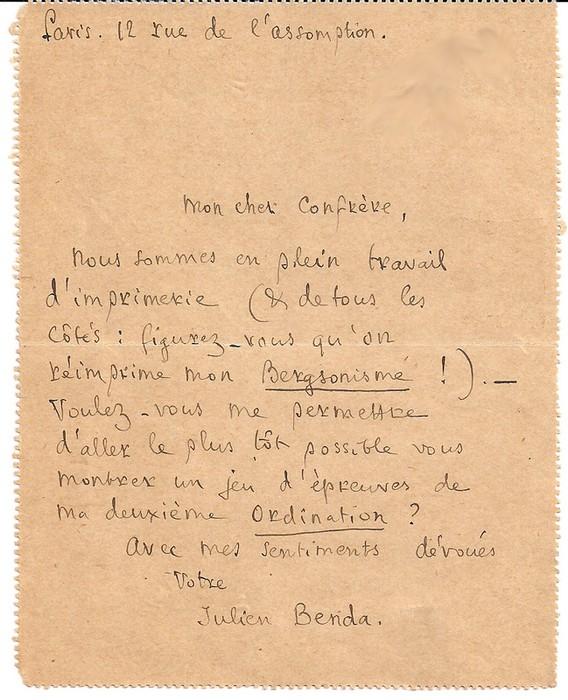 Paris. 12 rue de l'assomption.
Mon cher Confrère,
Nous sommes en plein travail
d'imprimerie (& de tous les
côtés : figurez-vous qu'on
réimprime mon Bergsonisme !). —
Voulez-vous me permettre
d'aller le plus tôt possible vous
montrer un jeu d'épreuves de
ma deuxième Ordination ?
Avec mes sentiments dévoués
Votre
Julien Benda.